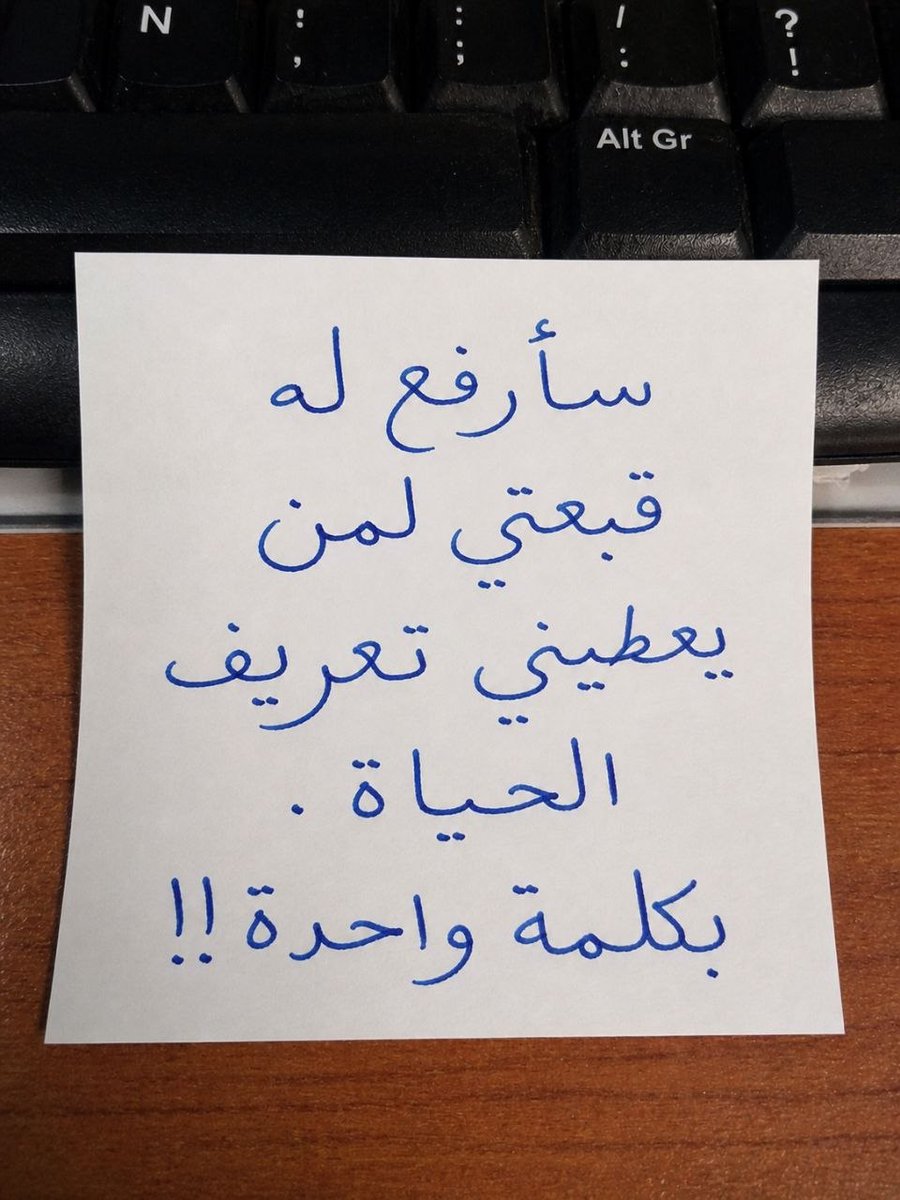 N : , : ; / : ? !
Alt Gr
سأرفع له
قبعتي لمن
يعطيني تعريف
الحياة .
بكلمة واحدة !!